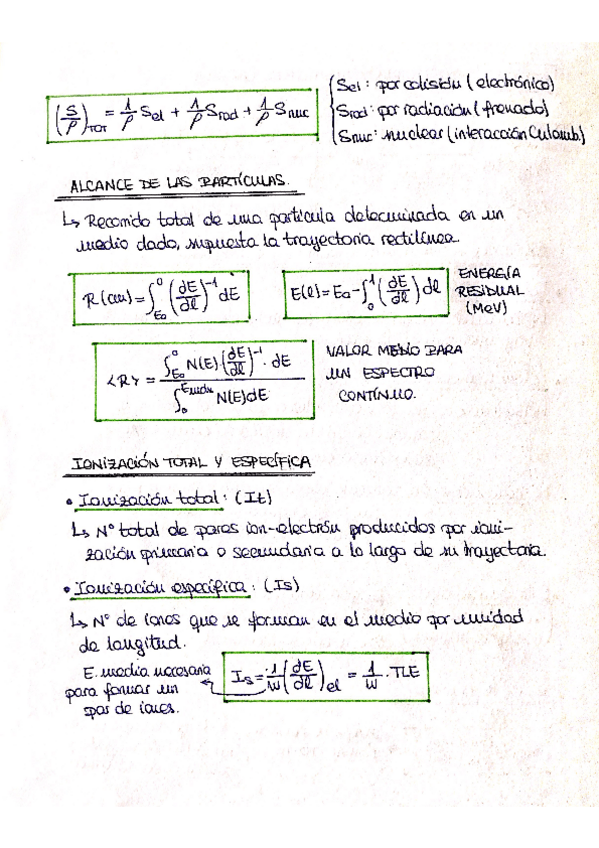 (S/ρ)TOT = 1/ρ Sel + 1/ρ Srad + 1/ρ Snuc
Sel: por colisión (electrónico)
Srad: por radiación (frenado)
Snuc: nuclear (interacción Culomb.)
ALCANCE DE LAS PARTÍCULAS.
↳ Recorrido total de una partícula determinada en un
medio dado, supuesta la trayectoria rectilínea.
R (cm) = ∫_{E0}^{0} (dE/dl)^{-1} dE
E(l) = E0 - ∫_{0}^{1} (dE/dl) dl
ENERGÍA
RESIDUAL
(MeV)
<R> = ∫_{E0}^{0} N(E)·(dE/dl)^{-1}·dE / ∫_{0}^{Emáx} N(E)dE
VALOR MEDIO PARA
UN ESPECTRO
CONTÍNUO.
IONIZACIÓN TOTAL Y ESPECÍFICA
• Ionización total: (It)
↳ Nº total de pares ion-electrón producidos por ioni-
zación primaria o secundaria a lo largo de su trayectoria.
• Ionización específica: (Is)
↳ Nº de iones que se forman en el medio por unidad
de longitud.
E. media necesaria
para formar un
par de iones.
Is = 1/w (dE/dl)el = 1/w · TLE